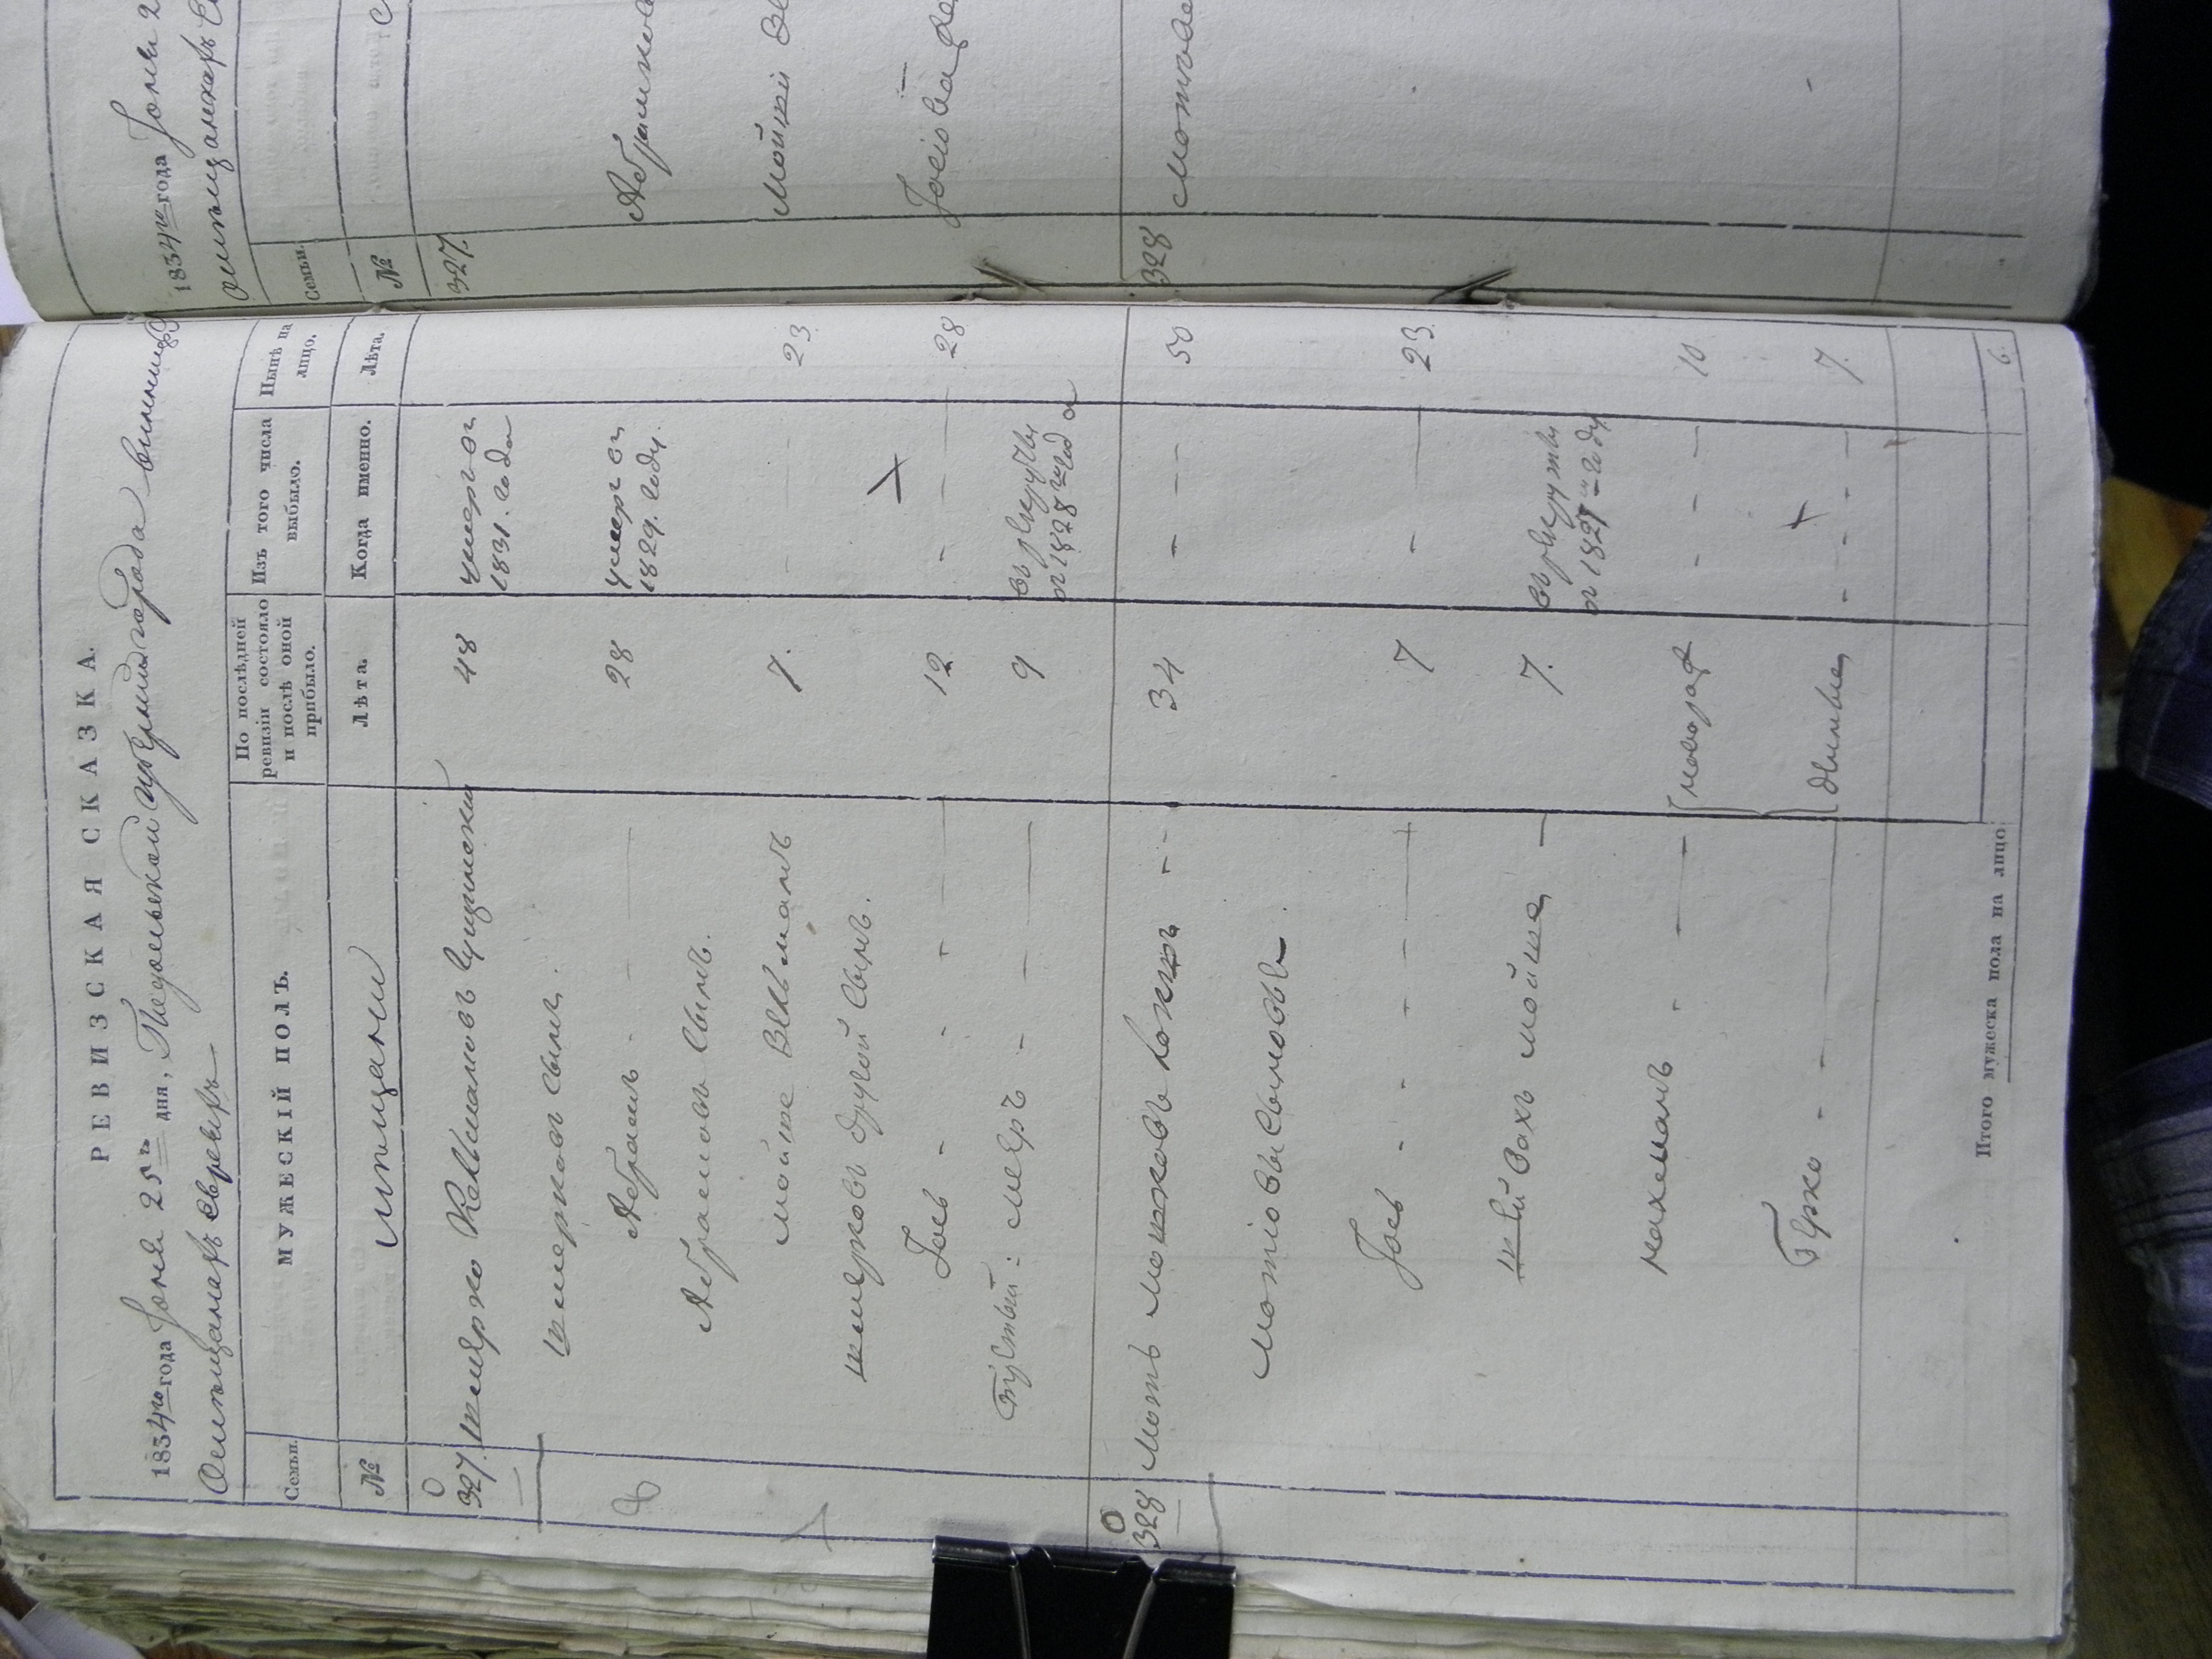 РЕВИЗСКАЯ СКАЗКА.
1834го года Іюня 25го дня, Подольской губерніи города Винницы
О мѣщанахъ евреяхъ
Семьи.
МУЖЕСКІЙ ПОЛЪ.
По послѣдней ревизіи состояло и послѣ оной прибыло.
Изъ того числа выбыло.
Нынѣ на лицо.
№
мѣщане
Лѣта.
Когда именно.
Лѣта.
327. Шмерко 48 умеръ въ 1831. года
шмерковъ сынъ.
Абрамъ - - 28 умеръ въ 1829. году.
Абрамовъ сынъ.
мойше Векъманъ 7. 23
шмерковъ другой сынъ.
Іось - - - 12 - 28
третій: мееръ - - 9 въ рекруты въ 1828м года
328 мотъ мошковъ - - 34 - - - 50
мотіовы сыновья.
Іось - - - - 7 - 23.
мойше 7. въ рекруты въ 1827м году
нахманъ - - - новорож - - - 10
Берко - - дѣнные - - - 7.
Итого мужеска пола на лицо 6.
1834го года Іюня 2
О мѣщанахъ е
Семьи.
№
327.
Абрамков
мойше ве
Іосіова
328 мотіов